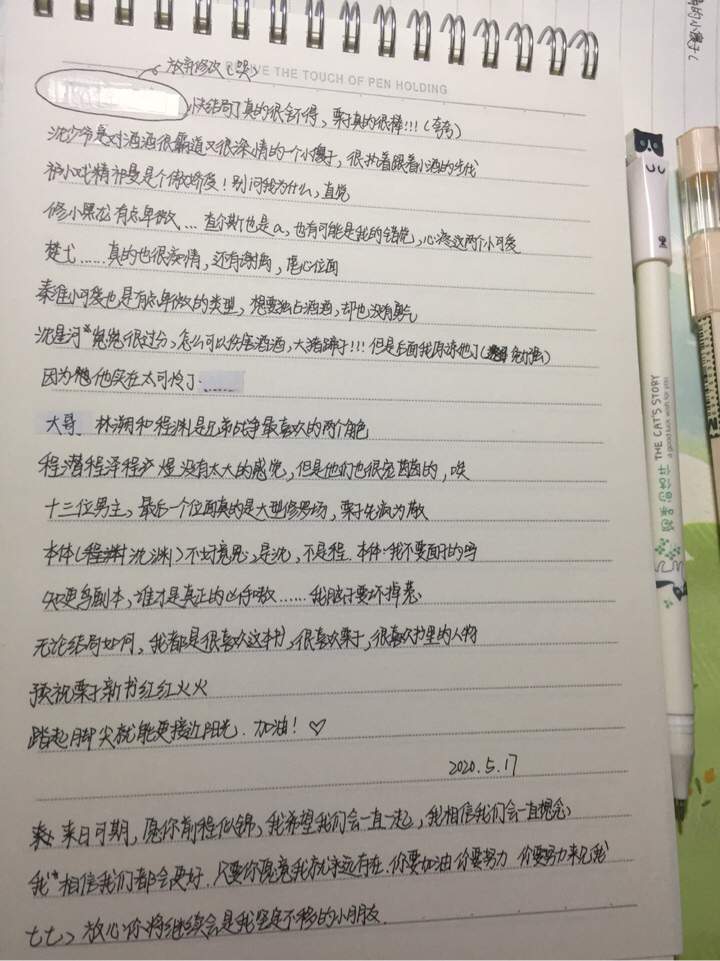 放弃修改(哭
THE TOUCH OF PEN HOLDING
快结局了真的很舍不得，栗子真的很棒!!!(夸夸)
沈少爷是对酒酒很霸道又很深情的一个小傻子，很执着跟着小酒的步伐
祁小戏精祁曼是个傲娇受！别问我为什么，直觉
修小黑龙有点卑微…查尔斯也是a，也有可能是我的错觉，心疼这两个小可爱
楚弋……真的也很痴情，还有谢离，虐心位面
秦淮小可爱也是有点卑微的类型，想要独占酒酒，却也没有勇气
沈星河*觉觉很过分，怎么可以伤害酒酒，大猪蹄子!!!但是后面我原谅他了(勉强)
因为他实在太可怜了
大哥 林渊和程渊是兄弟战争最喜欢的两个角色
程潜程泽程煜没有太大的感觉，但是他们也很宠茵茵的，唉
十三位男主，最后一个位面真的是大型修罗场，栗子先疯为敬
本体(沈渊)不好意思，是沈，不是程.本体:我不要面子的吗
知更鸟副本，谁才是真正的凶手嗷……我脑子要坏掉惹
无论结局如何，我都是很喜欢这本书，很喜欢栗子，很喜欢书里的人物
预祝栗子新书红红火火
踏起脚尖就能更接近阳光.加油！♡
2020.5.17
来日可期，愿你前程似锦，我希望我们会一直一起，我相信我们会一直想念
我*相信我们都会更好.只要你愿意我就永远存在.你要加油你要努力 你要努力来见我
七七、放心你将继续会是我坚定不移的小朋友
THE CAT'S STORY
a good luck wish for you